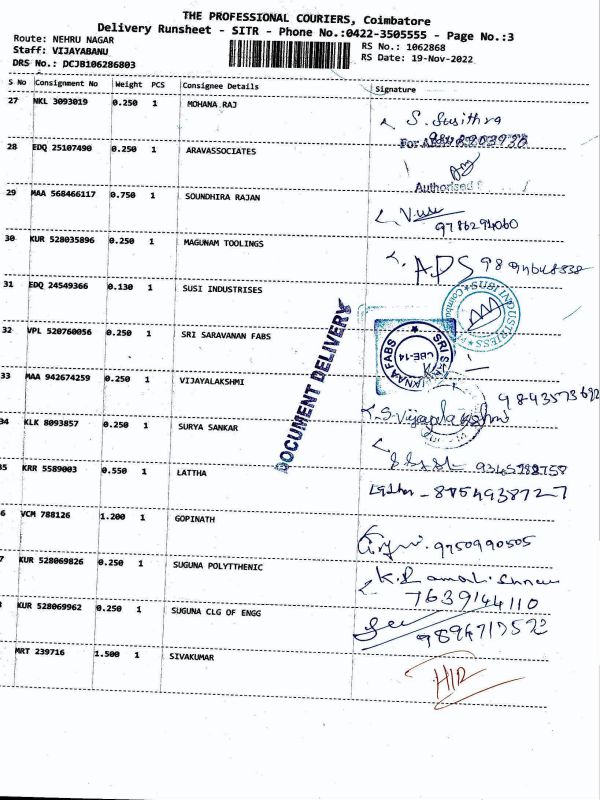 THE PROFESSIONAL COURIERS, Coimbatore
Delivery Runsheet - SITR - Phone No.:0422-3505555 - Page No.:3
Route: NEHRU NAGAR
Staff: VIJAYABANU
DRS No.: DCJB106286803
RS No.: 1062868
RS Date: 19-Nov-2022
S No Consignment No Weight PCS Consignee Details Signature
27 NKL 3093019 0.250 1 MOHANA RAJ S. Susithra
28 EDQ 25107490 0.250 1 ARAVASSOCIATES Authorised
29 MAA 568466117 0.750 1 SOUNDHIRA RAJAN 9786294060
30 KUR 528035896 0.250 1 MAGUNAM TOOLINGS APS
31 EDQ 24549366 0.130 1 SUSI INDUSTRISES SUSI INDUSTRIESS
32 VPL 520760056 0.250 1 SRI SARAVANAN FABS CBE-14
DOCUMENT DELIVERY
33 MAA 942674259 0.250 1 VIJAYALAKSHMI K.S.Vijayalakshmi
34 KLK 8093857 0.250 1 SURYA SANKAR
35 KRR 5589003 0.550 1 LATTHA 8754938727
6 VCM 788126 1.200 1 GOPINATH 9750990505
7 KUR 528069826 0.250 1 SUGUNA POLYTTHENIC 7639144110
KUR 528069962 0.250 1 SUGUNA CLG OF ENGG
MRT 239716 1.500 1 SIVAKUMAR